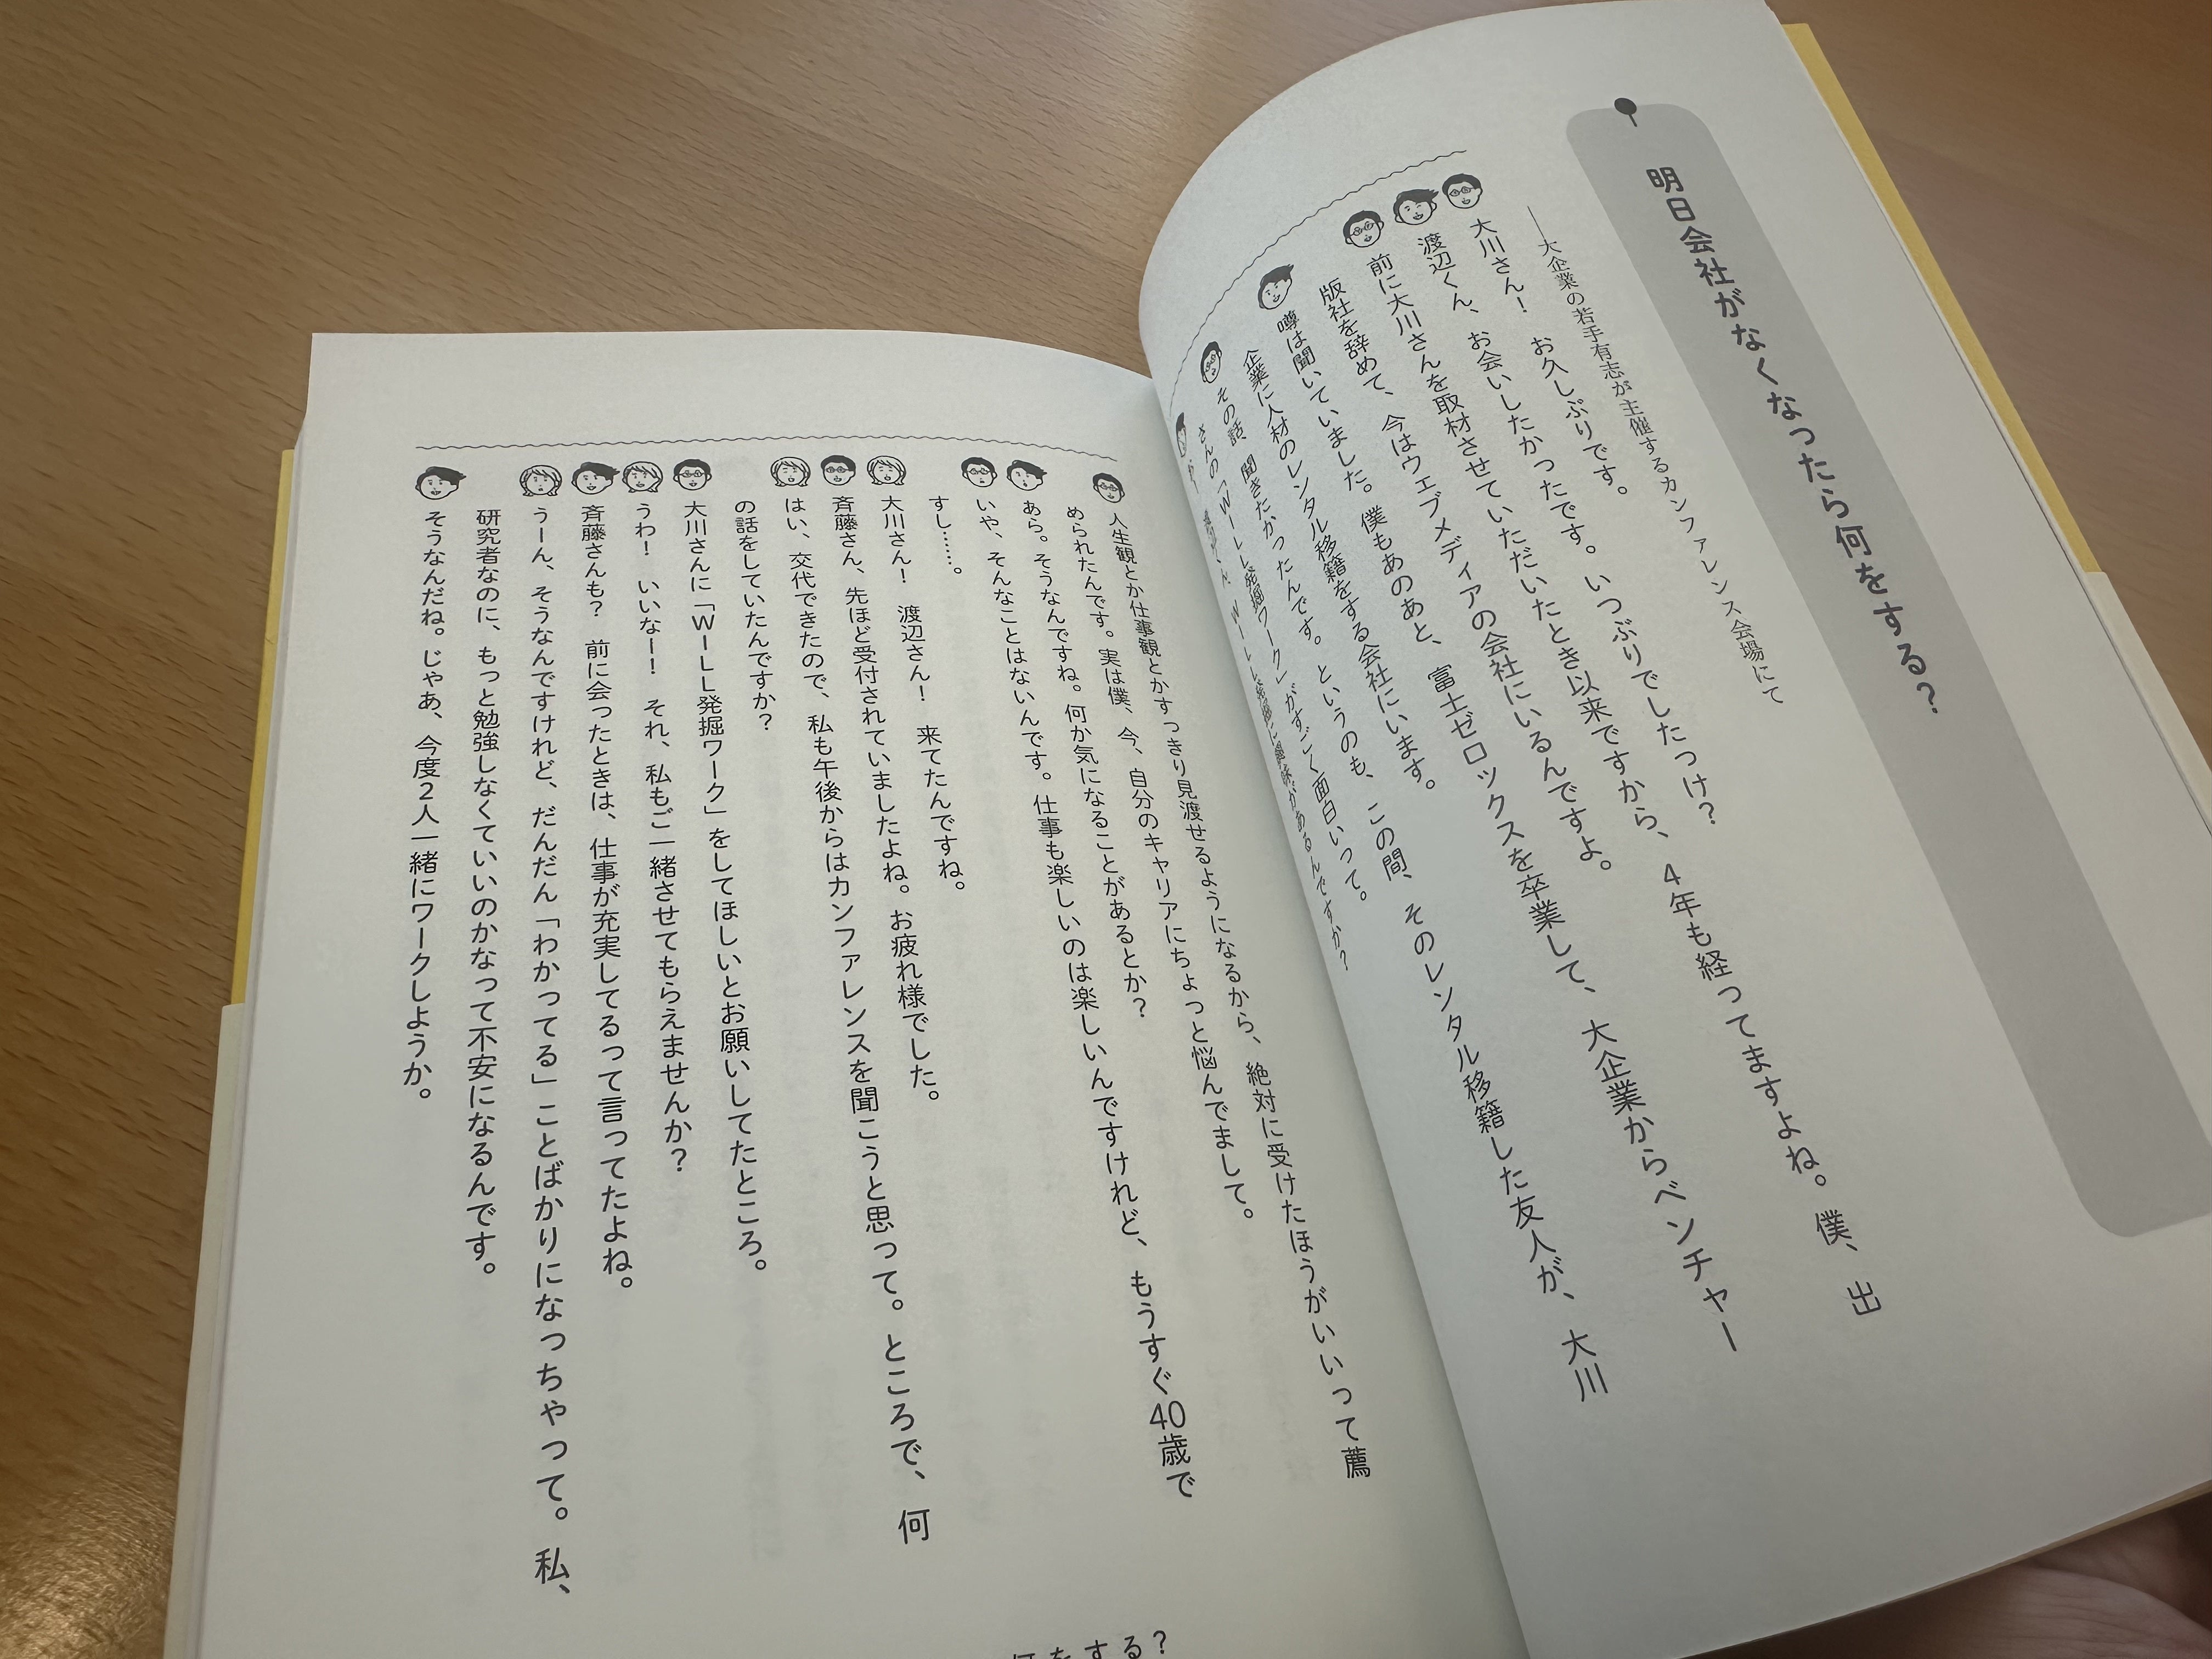 明日会社がなくなったら何をする?
──大企業の若手有志が主催するカンファレンス会場にて
大川さん! お久しぶりです。
渡辺くん、お会いしたかったです。いつぶりでしたっけ?
前に大川さんを取材させていただいたとき以来ですから、4年も経ってますよね。僕、出
版社を辞めて、今はウェブメディアの会社にいるんですよ。
噂は聞いていました。僕もあのあと、富士ゼロックスを卒業して、大企業からベンチャー
企業に人材のレンタル移籍をする会社にいます。
その話、聞きたかったんです。というのも、この間、そのレンタル移籍した友人が、大川
さんの「WILL発掘ワーク」がすごく面白いって。
WILL発掘に興味があるんですか?
人生観とか仕事観とかすっきり見渡せるようになるから、絶対に受けたほうがいいって薦
められたんです。実は僕、今、自分のキャリアにちょっと悩んでまして。
あら。そうなんですね。何か気になることがあるとか?
いや、そんなことはないんです。仕事も楽しいのは楽しいんですけれど、もうすぐ40歳で
すし……。
大川さん! 渡辺さん! 来てたんですね。
斉藤さん、先ほど受付されていましたよね。お疲れ様でした。
はい、交代できたので、私も午後からはカンファレンスを聞こうと思って。ところで、何
の話をしていたんですか?
大川さんに「WILL発掘ワーク」をしてほしいとお願いしてたところ。
うわ! いいなー! それ、私もご一緒させてもらえませんか?
斉藤さんも? 前に会ったときは、仕事が充実してるって言ってたよね。
うーん、そうなんですけれど、だんだん「わかってる」ことばかりになっちゃって。私、
研究者なのに、もっと勉強しなくていいのかなって不安になるんです。
そうなんだね。じゃあ、今度2人一緒にワークしようか。
何をする?